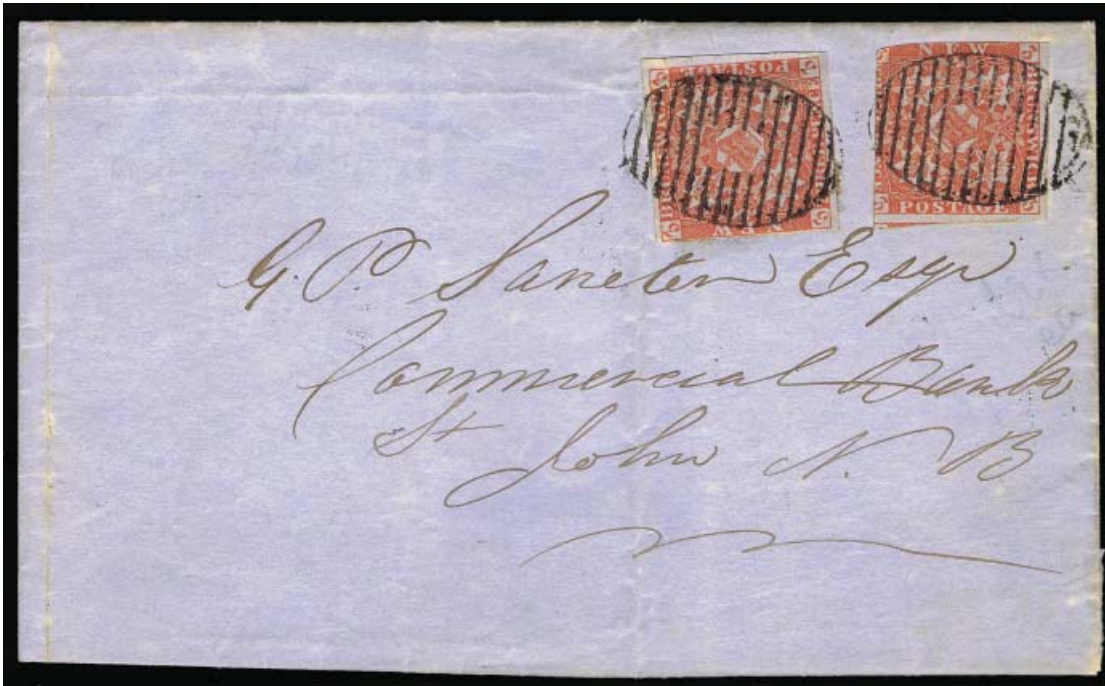 NEW
BRUNSWICK
POSTAGE
NEW
BRUNSWICK
POSTAGE
G. P. Sancton Esqr
Commercial Bank
St John N. B